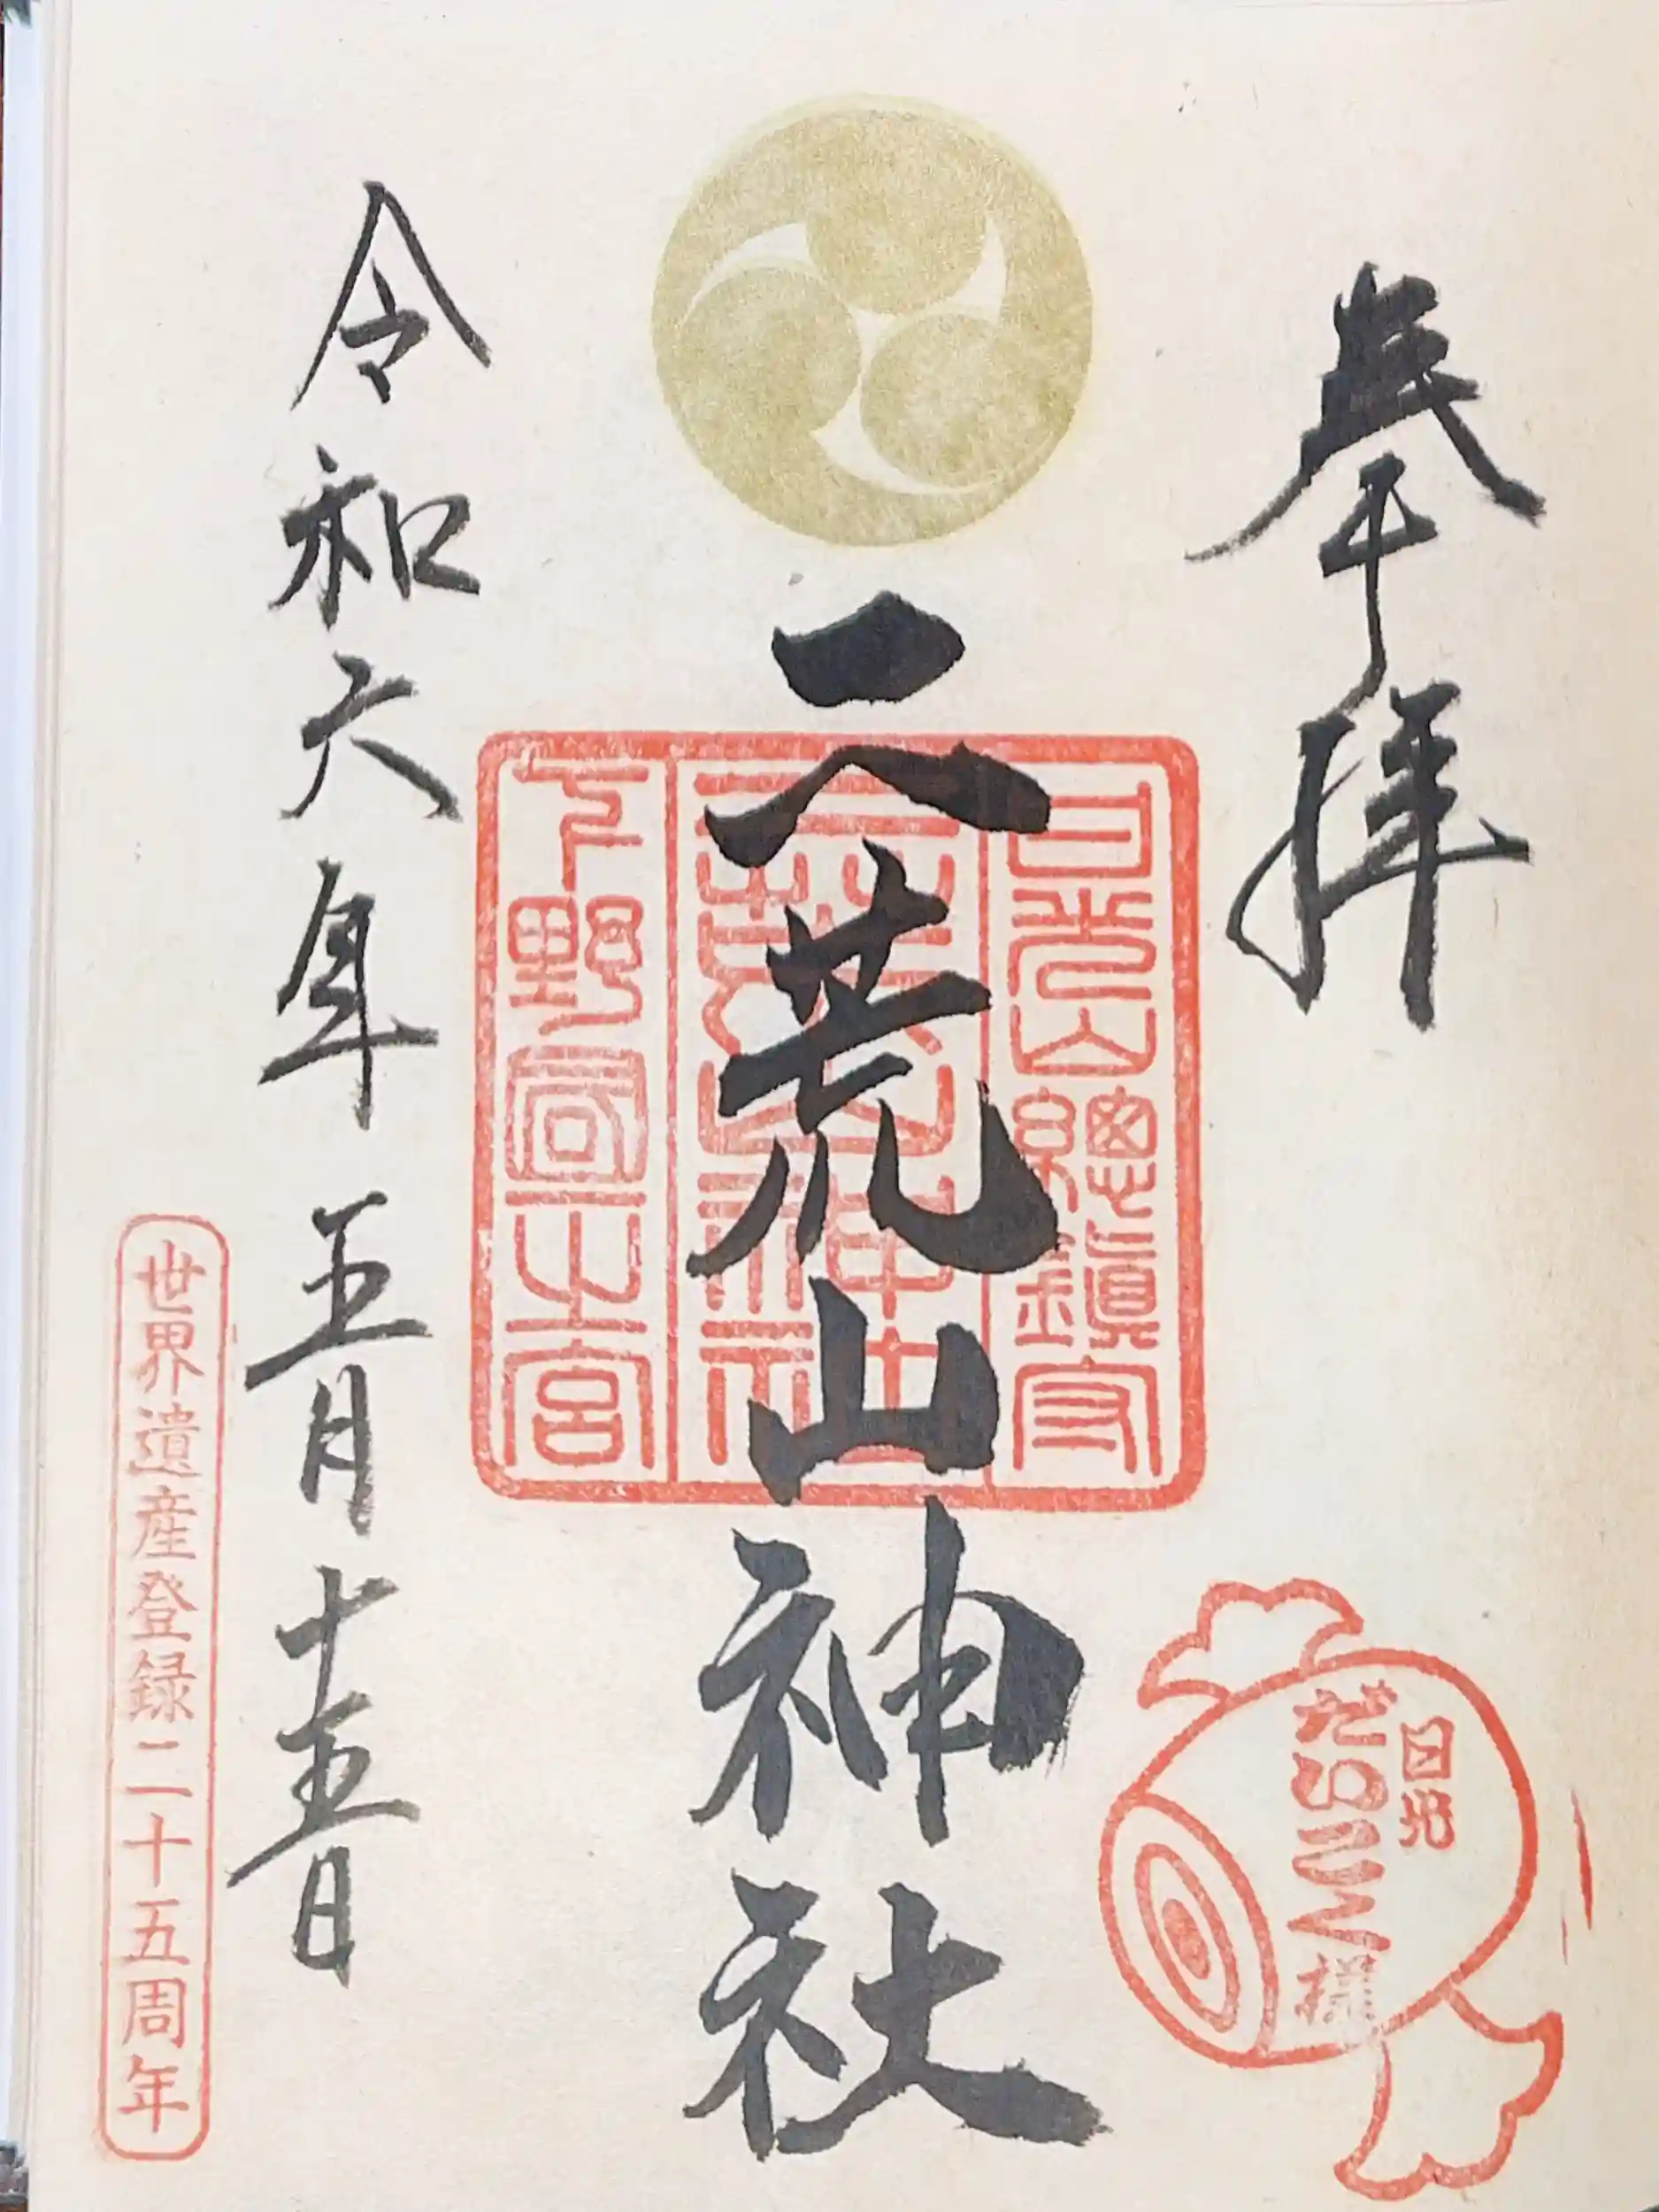 奉拝
日光
だいこく様
日光山總鎮守
二荒山神社
二荒山神社
下野國一之宮
令和六年五月十五日
世界遺産登録二十五周年